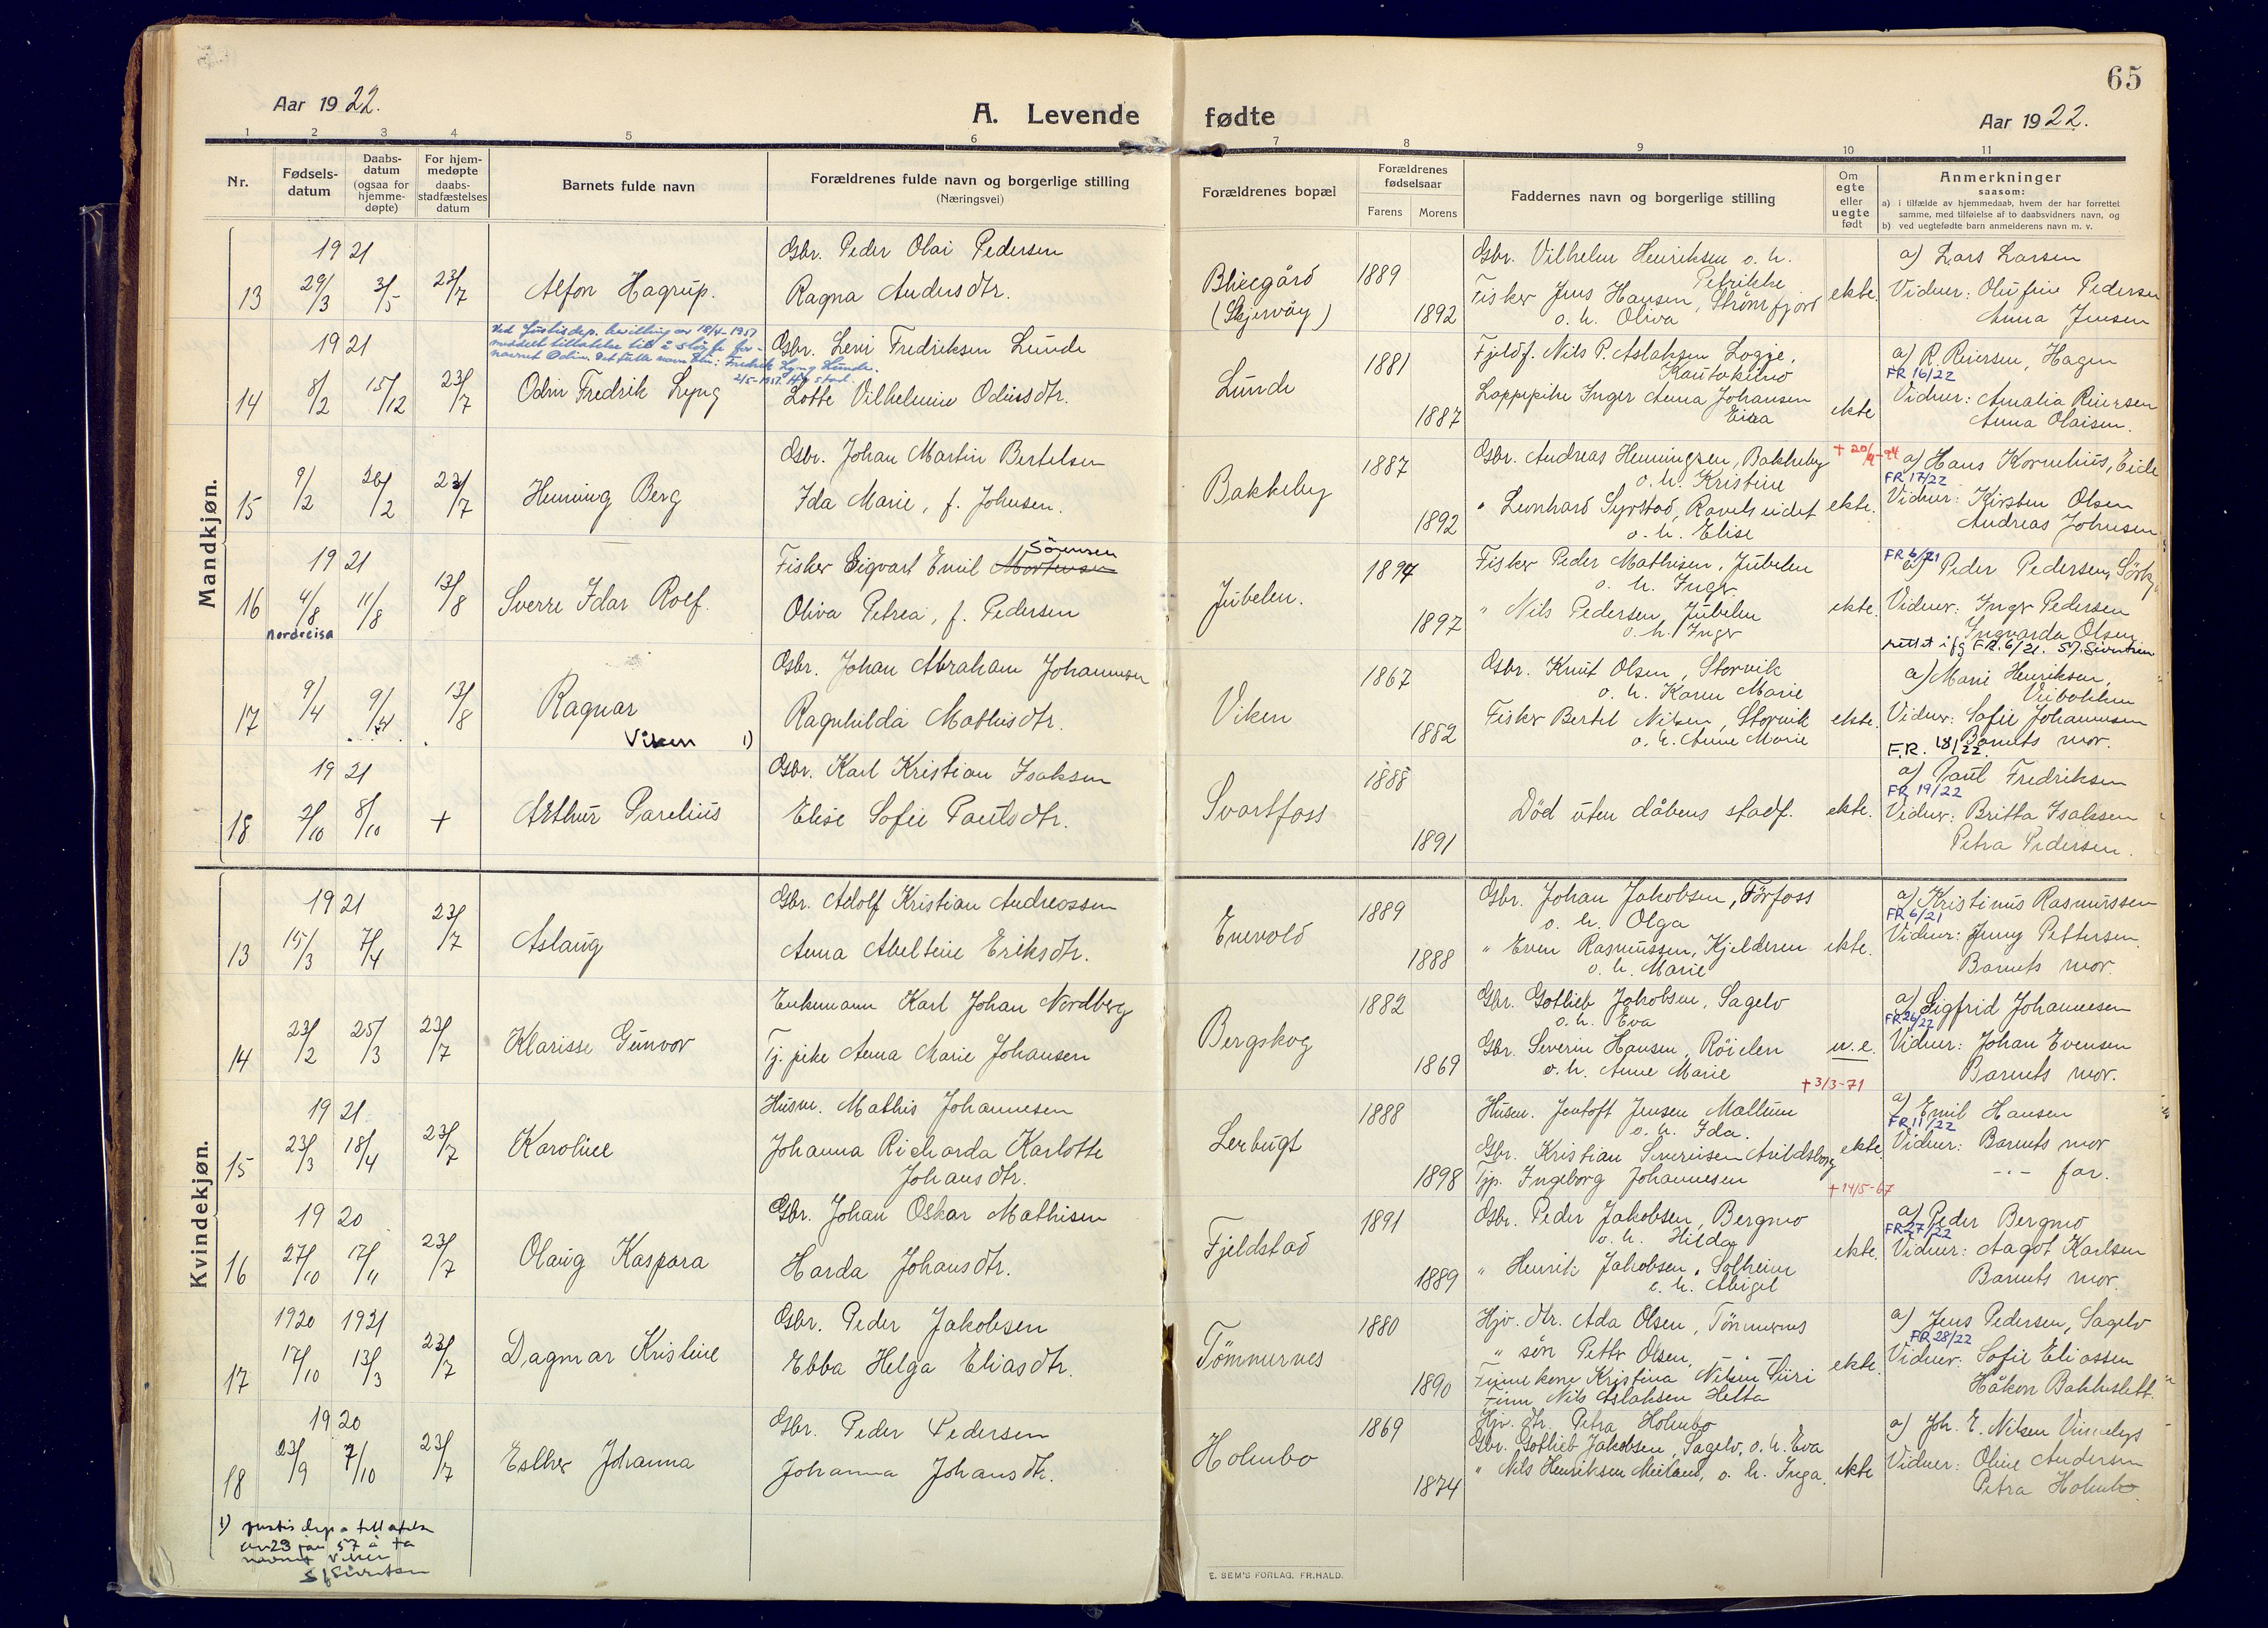 65
Aar 1922.
A. Levende fødte
Aar 1922.
1 2 3 4 5 6 7 8 9 10 11
Nr.
Fødsels-
datum
Daabs-
datum
(ogsaa for
hjemme-
døpte)
For hjem-
medøpte
daabs-
stadfæstelses
datum
Barnets fulde navn
Forældrenes fulde navn og borgerlige stilling
(Næringsvei)
Forældrenes bopæl
Forældrenes
fødselsaar
Farens Morens
Faddernes navn og borgerlige stilling
Om
egte
eller
uegte
født
Anmerkninger
saasom:
a) i tilfælde av hjemmedaab, hvem der har forrettet
samme, med tilføielse af to daabsvidners navn, og
b) ved uegtefødte barn anmelderens navn m. v.
Mandkjøn.
1921
13 29/3 3/5 23/7 Alfon Hagrup.
Gbr. Peder Olai Pedersen
Ragna Andersdtr.
(Skjervøy)
1889
1892
Gbr. Vilhelm Henriksen o. h.
Petrikke
Fisker Jens Hansen, Strømfjord
o. h. Oliva
ekte.
a) Lars Larsen
Vidner: Olufine Pedersen
Anna Jensen
1921
Ved Justisdep. bevilling av 18/4-1957
meddelt tillatelse til å sløyfe for-
navnet Odin. Det fulle navn blir: Fredrik Lyng Lunde.
14 8/2 15/12 23/7 Odin Fredrik Lyng
Gbr. Levi Fredriksen Lunde
Lotte Vilhelmine Odinsdtr.
Lunde
1881
1887
Fjeldf. Nils P. Aslaksen Logje,
Kautokeino
Lappepike Inger Anna Johansen
Eira
ekte
a) R. Reiersen, Hagen
FR 16/22
Vidner: Amalia Reiersen
Anna Olaisen.
15 9/2 26/2 23/7 Henning Berg
Gbr. Johan Martin Bertelsen
Ida Marie, f. Johnsen.
Bakkeby
1887
1892
Gbr. Andreas Henningsen, Bakkeby
o. h. Kristine
" Leonhard Syrstad, Ravelseidet
o. h. Elise
ekte.
a) Hans Kornelius, Eide
FR 17/22
Vidner: Kirsten Olsen
Andreas Johnsen
1921
16 4/8 11/8 13/8 Sverre Idar Rolf.
Nordreisa
Sørensen
Fisker Sigvart Emil Mortensen
Oliva Petrea, f. Pedersen
Jubelen.
1894
1897
Fisker Peder Mathisen, Jubelen
o. h. Inger
" Nils Pedersen, Jubelen
o. h. Inger
ekte.
FR 6/21
a) Peder Pedersen,
Vidner: Inger Pedersen
Ingvarda Olsen
rettet ifg FR. 6/21.
17 9/4 9/4 13/8 Ragnar
Viken 1)
Gbr. Johan Abraham Johannesen
Ragnhilda Mathisdtr.
Viken
1867
1882
Gbr. Knut Olsen, Storvik
o. h. Karen Marie
Fisker Bertel Nilsen, Storvik
o. h. Anne Marie
ekte.
a) Marie Henriksen,
Veibakken
Vidner: Sofie Johannesen
Barnets mor.
F.R. 18/22
1921
18 2/10 8/10 + Arthur Parelius
Gbr. Karl Kristian Isaksen
Elise Sofie Paulsdtr.
Svartfoss
1888
1891
Død uten dåbens stadf.
ekte.
a) Paul Fredriksen
FR 19/22
Vidner: Britta Isaksen
Petra Pedersen.
Kvindekjøn.
1921
13 15/3 7/4 23/7 Aslaug
Gbr. Adolf Kristian Andreassen
Anna Abeltine Eriksdtr.
Enevold
1889
1888
Gbr. Johan Jakobsen, Førfoss
o. h. Olga
" Even Rasmussen, Kjelderen
o. h. Marie
ekte.
a) Kristinus Rasmussen
FR 6/21
Vidner: Jenny Pettersen
Barnets mor.
14 23/2 25/3 23/7 Klarisse Gunvor
Enkemann Karl Johan Nordberg
Tj. pike Anna Marie Johansen
Bergskog
1882
1869
Gbr. Gotlieb Jakobsen, Sagelv
o. h. Eva
Gbr. Severin Hansen, Røielen
o. h. Anne Marie
u. e.
a) Sigfrid Johannesen
FR 26/22
Vidner: Johan Evensen
Barnets mor.
+ 3/3-71
1921
15 23/3 18/4 23/7 Karoline
Husm. Mathis Johannesen
Johanna Richarda Karlotte
Johansdtr.
Lerbugt
1888
1898
Husm. Jentoft Jensen Mallum
o. h. Ida.
Gbr. Kristian Severinsen Arildsborg
Tjp. Ingeborg Johannesen
ekte.
a) Emil Hansen
FR 11/22
Vidner: Barnets mor
-"- far.
+ 14/5-67
1920
16 27/10 17/11 23/7 Olaug Kaspara
Gbr. Johan Oskar Mathisen
Harda Johansdtr.
Fjeldstad
1891
1889
Gbr. Peder Jakobsen, Bergmo
o. h. Hilda
" Henrik Jakobsen, Solheim
o. h. Abigel
ekte.
a) Peder Bergmo
FR 27/22
Vidner: Aagot Karlsen
Barnets mor.
1920 1921
17 17/10 13/3 23/7 Dagmar Kristine
Gbr. Peder Jakobsen
Ebba Helga Eliasdtr.
Tømmernes
1880
1890
Hjv. dtr. Ada Olsen, Tømmernes
" søn Petter Olsen,
Finnekone Kristina Nilsen Siiri
Finn Nils Aslaksen Hetta
ekte.
a) Jens Pedersen, Sagelv
FR 28/22
Vidner: Sofie Eliassen
Håkon Bakkeslett.
1920
18 23/9 7/10 23/7 Esther Johanna
Gbr. Peder Pedersen
Johanna Johansdtr.
Holmbo
1869
1874
Hjv. dtr. Petra Holmbo
Gbr. Gotlieb Jakobsen, Sagelv, o. h. Eva
" Nils Henriksen Meiland, o. h. Inga.
ekte
a) Joh. E. Nilsen
Vidner: Oline Andersen
Petra Holmbo.
1) justisdep.s tillatelse
av 23 jan 57 å ta
navnet Viken
E. SEM'S FORLAG. FR.HALD.